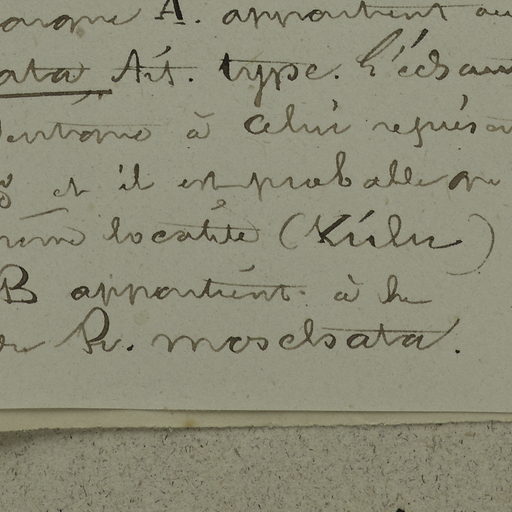 A. appartient au
ata Ait. type. L'échan
identique à celui représen
et il est probable que
même localité (Kúlu)
B appartient à la
R. moschata.